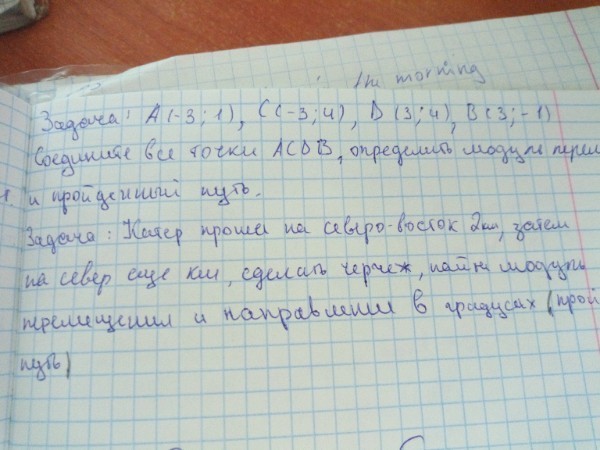 the morning
Задача: A(-3;1), C(-3;4), D(3;4), B(3;-1)
Соедините все точки ACDB, определить модуль перем
и пройденный путь.
Задача: Катер прошел на северо-восток 2км, затем
на север еще км, сделать чертеж, найти модуль
перемещения и направление в градусах (прой
путь)